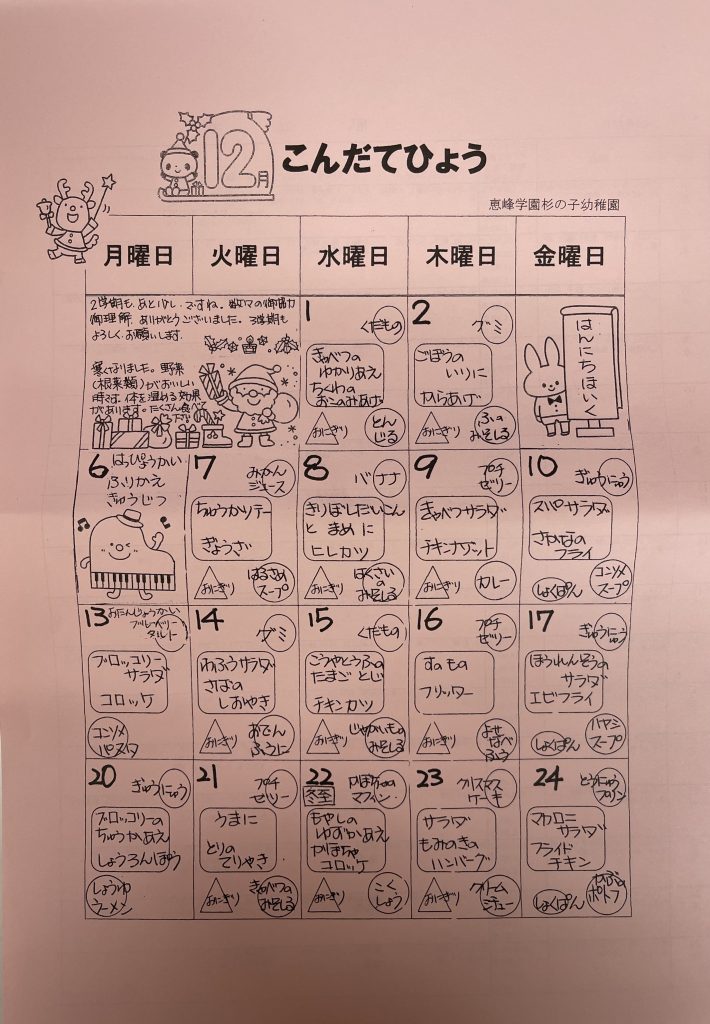 12月
こんだてひょう
恵峰学園杉の子幼稚園
月曜日 火曜日 水曜日 木曜日 金曜日
2学期も、あと少し、ですね。数々の御協力
御理解、ありがとうございました。3学期も
よろしく、お願いします。
寒くなりました。野菜
(根菜類)がおいしい
時です。体を温める効果
があります。たくさん食べて
下さい
1
くだもの
きゃべつの
ゆかりあえ
ちくわの
おこのみあげ
おにぎり
とん
じる
2
グミ
ごぼうの
いりに
からあげ
おにぎり
ふの
みそしる
はんにちほいく
6
はっぴょうかい
ふりかえ
きゅうじつ
7
みかん
ジュース
ちゅうかソテー
ぎょうざ
おにぎり
はるさめ
スープ
8
バナナ
きりぼしだいこん
と まめ に
ヒレカツ
おにぎり
はくさいの
みそしる
9
プチ
ゼリー
きゃべつサラダ
チキンナゲット
おにぎり
カレー
10
ぎゅうにゅう
スパサラダ
さかなの
フライ
しょくぱん
コンソメ
スープ
13
おたんじょうかーい
ブルーベリー
タルト
ブロッコリー
サラダ
コロッケ
コンソメ
パスタ
14
グミ
わふうサラダ
さばの
しおやき
おにぎり
おでん
ふうに
15
くだもの
こうやとうふの
たまご とじ
チキンカツ
おにぎり
じゃがいもの
みそしる
16
プチ
ゼリー
すのもの
フリッター
おにぎり
よせ
なべ
ふう
17
ぎゅうにゅう
ほうれんそうの
サラダ
エビフライ
しょくぱん
ハヤシ
スープ
20
ぎゅうにゅう
ブロッコリーの
ちゅうかあえ
しょうろんぽう
しょうゆ
ラーメン
21
プチ
ゼリー
うまに
とりの
てりやき
おにぎり
きゃべつの
みそしる
22
冬至
かぼちゃの
マフィン
もやしの
ゆずかあえ
かぼちゃ
コロッケ
おにぎり
こく
しょう
23
クリスマス
ケーキ
サラダ
もみのきの
ハンバーグ
おにぎり
クリーム
シチュー
24
とうにゅう
プリン
マカロニ
サラダ
フライド
チキン
しょくぱん
かぶの
ポトフ